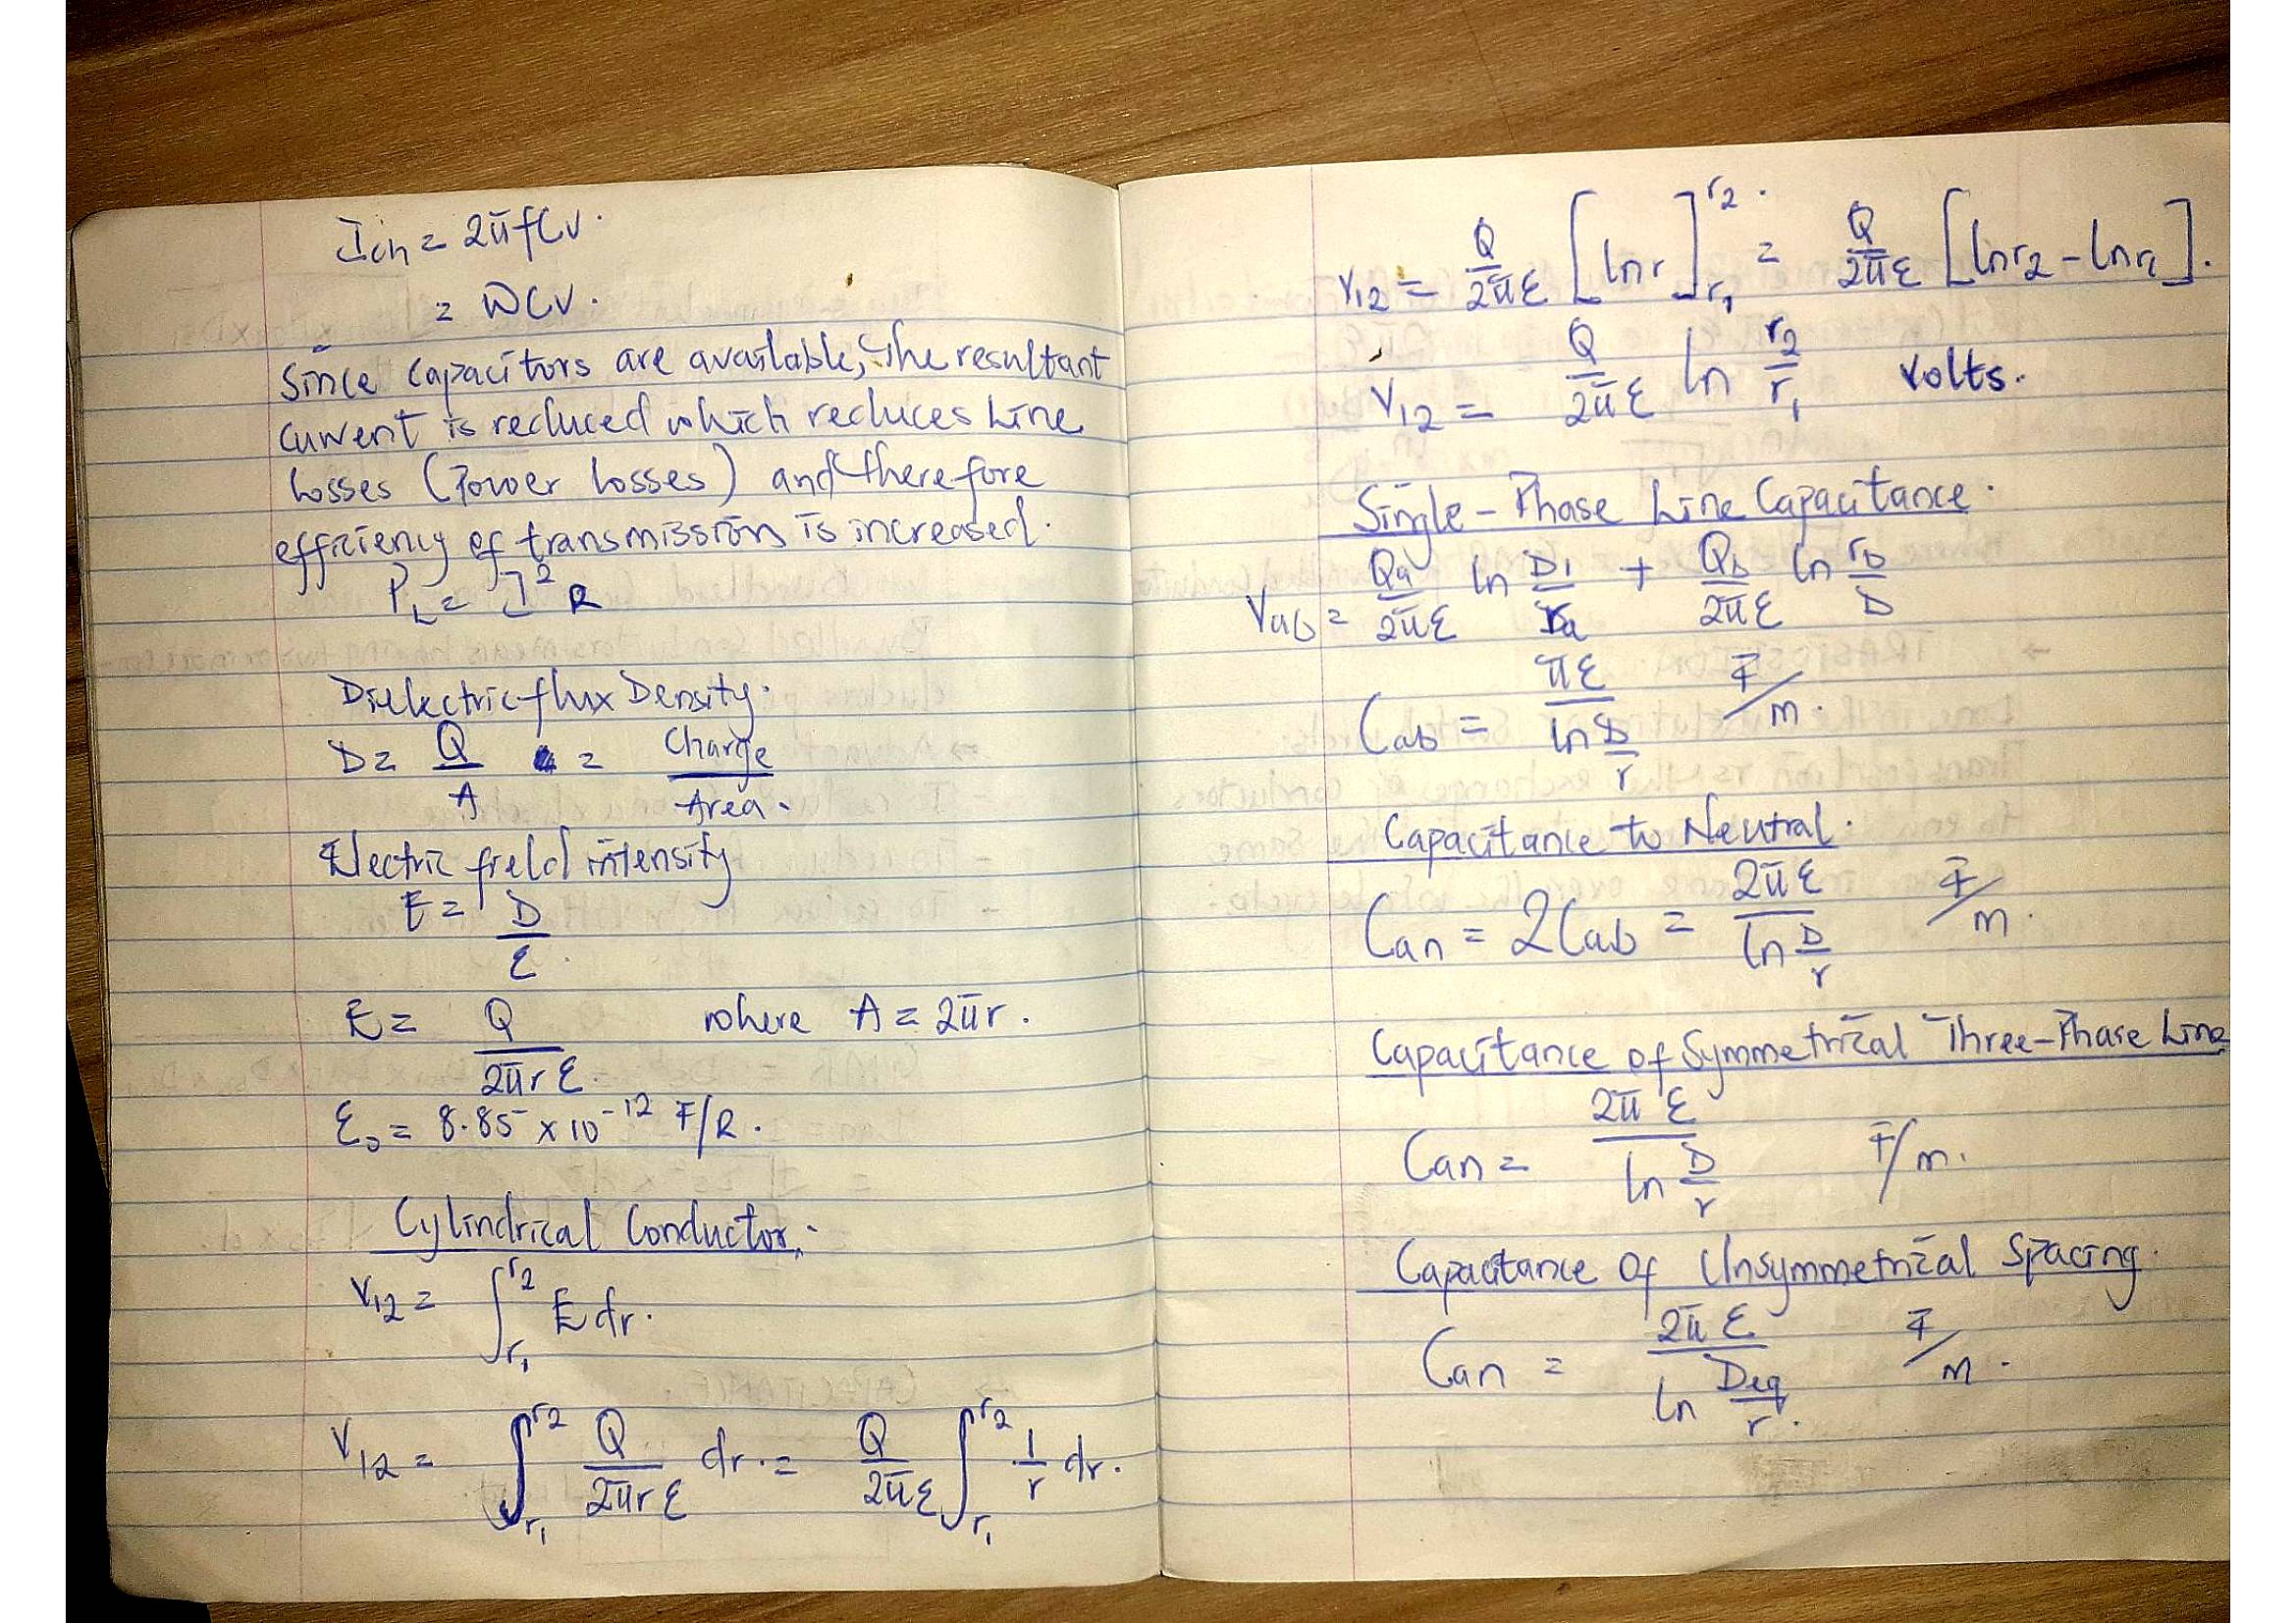 Ich = 2πfCV.
= ωCV.
Since Capacitors are available, the resultant
current is reduced which reduces Line
Losses (Power Losses) and therefore
efficiency of transmission is increased.
P_L = I² R
Dielectric flux Density.
D = Q/A = Charge/Area.
Electric field intensity
E = D/ε.
E = Q/2πrε. where A = 2πr.
ε₀ = 8.85 × 10⁻¹² F/R.
Cylindrical Conductor.
V₁₂ = ∫_{r₁}^{r₂} E dr.
V₁₂ = ∫_{r₁}^{r₂} Q/2πrε dr. = Q/2πε ∫_{r₁}^{r₂} 1/r dr.
V₁₂ = Q/2πε [ln r]_{r₁}^{r₂}. = Q/2πε [ln r₂ - ln r₁].
V₁₂ = Q/2πε ln r₂/r₁ Volts.
Single-Phase Line Capacitance.
Vab = Qa/2πε ln D₁/ra + Qb/2πε ln rb/D
Cab = πε/ln D/r F/m.
Capacitance to Neutral.
Can = 2Cab = 2πε/ln D/r F/m.
Capacitance of Symmetrical Three-Phase Line
Can = 2πε/ln D/r F/m.
Capacitance Of Unsymmetrical Spacing.
Can = 2πε/ln Deq/r. F/m.